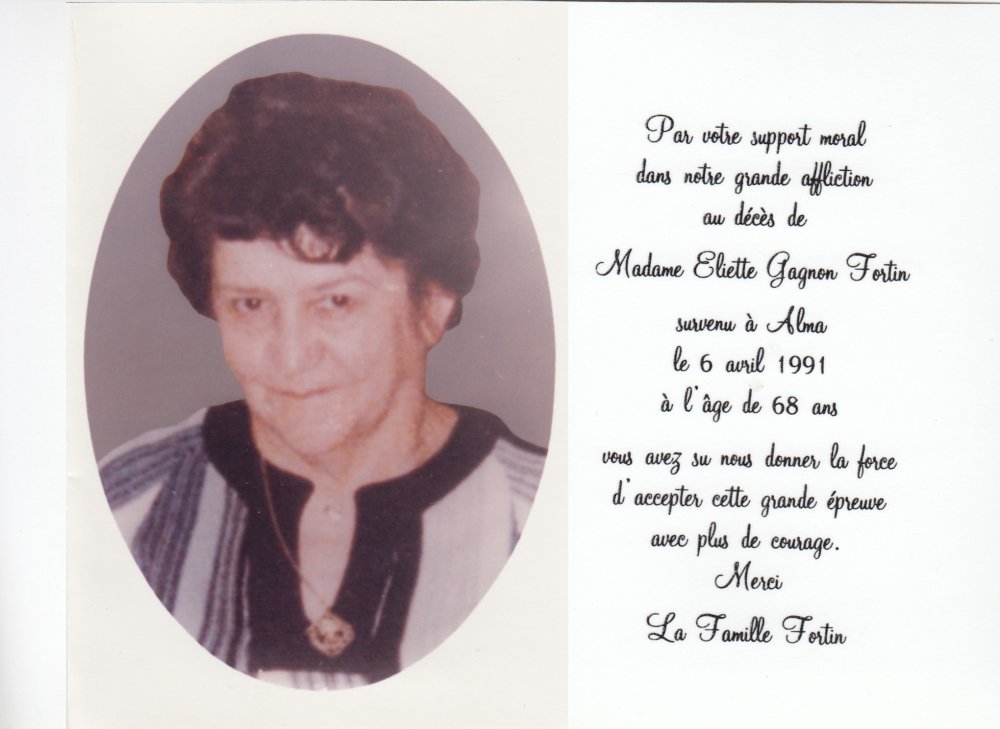 Par votre support moral
dans notre grande affliction
au décès de
Madame Eliette Gagnon Fortin
survenu à Alma
le 6 avril 1991
à l'âge de 68 ans
vous avez su nous donner la force
d'accepter cette grande épreuve
avec plus de courage.
Merci
La Famille Fortin